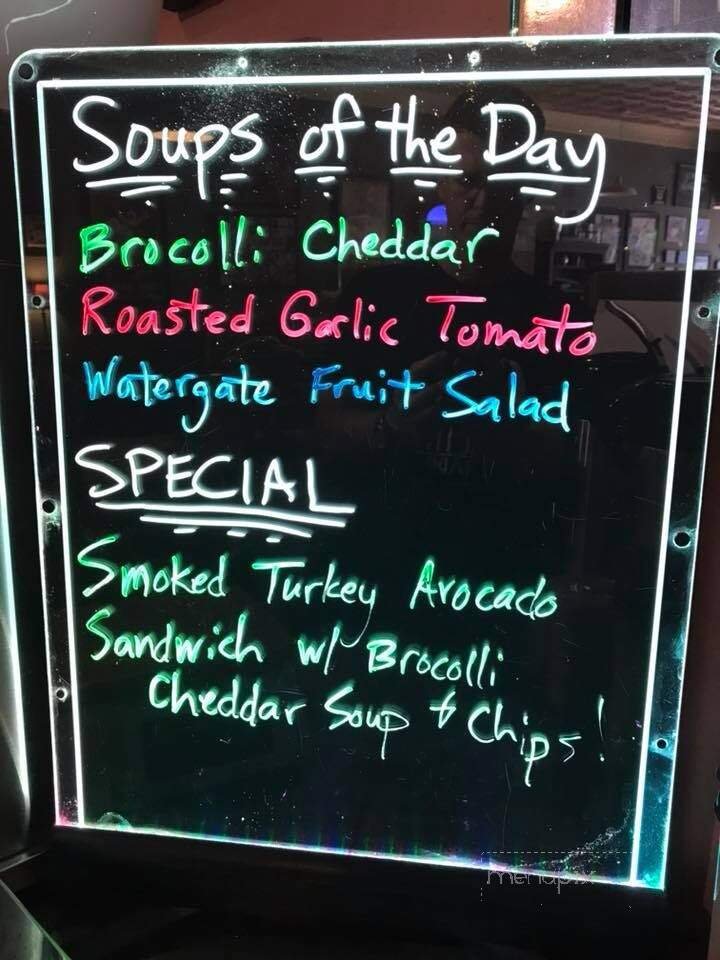 Soups of the Day
Brocolli Cheddar
Roasted Garlic Tomato
Watergate Fruit Salad
SPECIAL
Smoked Turkey Avocado
Sandwich w/ Brocolli
Cheddar Soup & Chips!
menupix